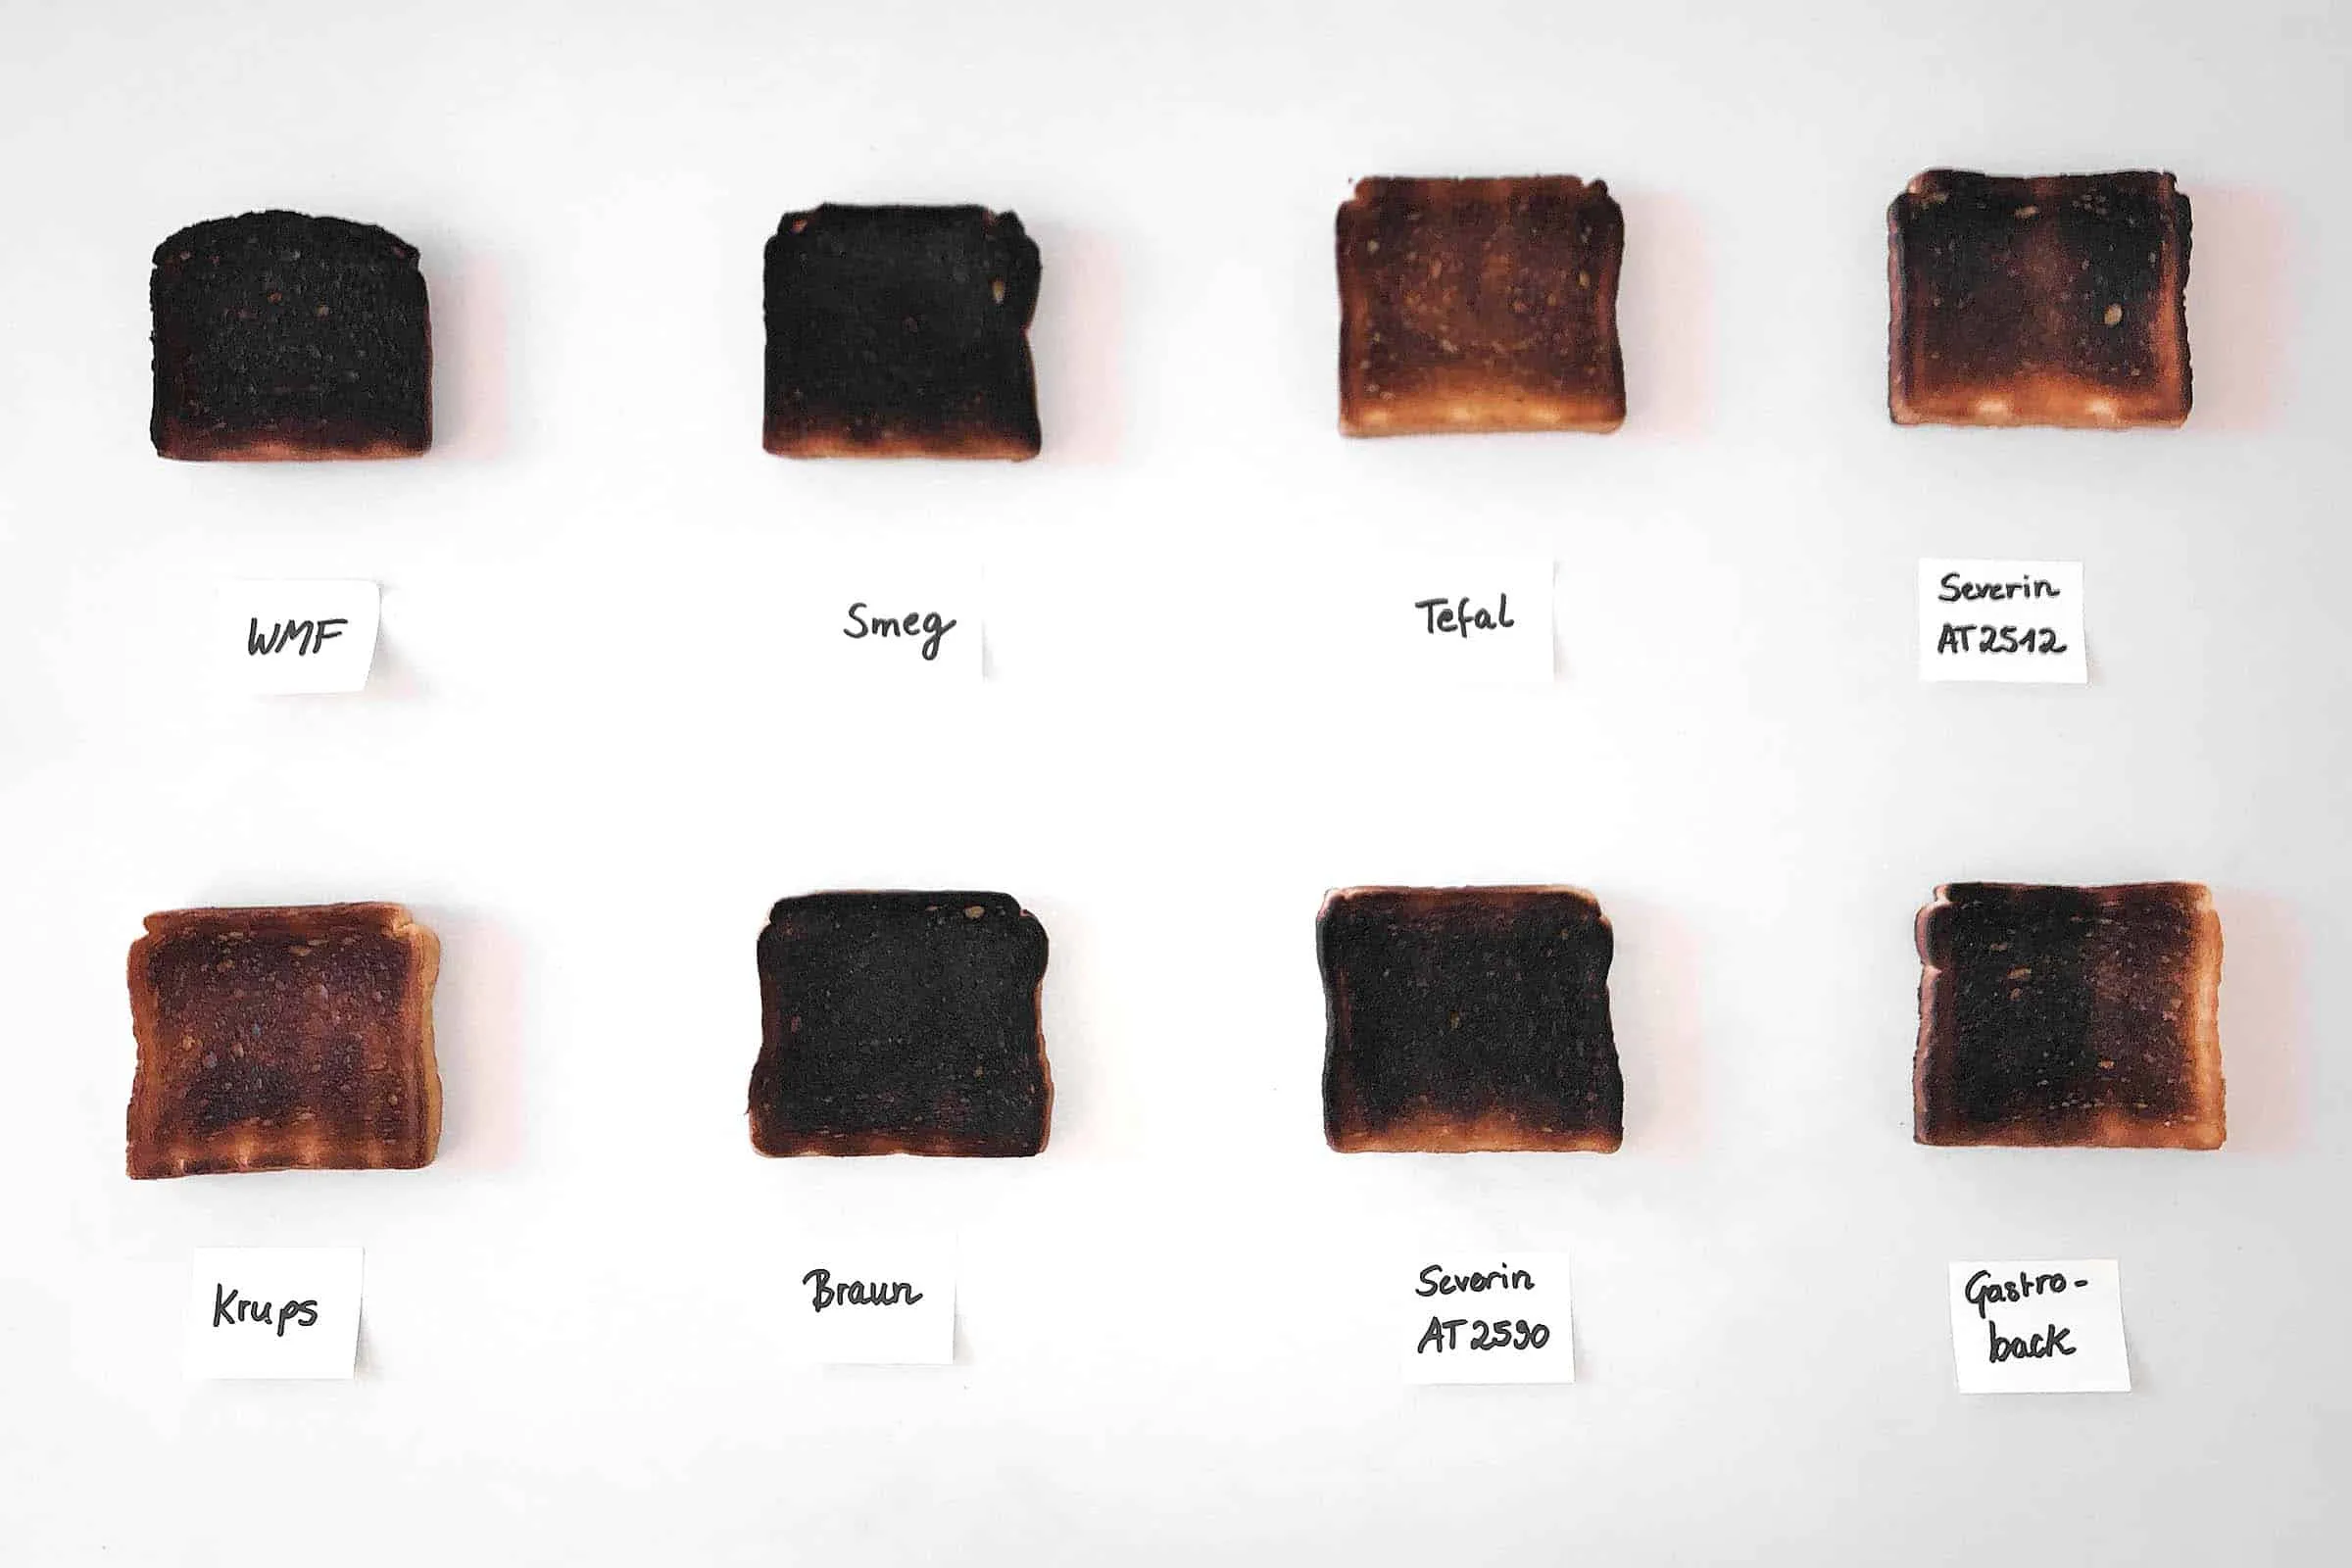 WMF
Smeg
Tefal
Severin
AT2512
Krups
Braun
Severin
AT2590
Gastro-
back